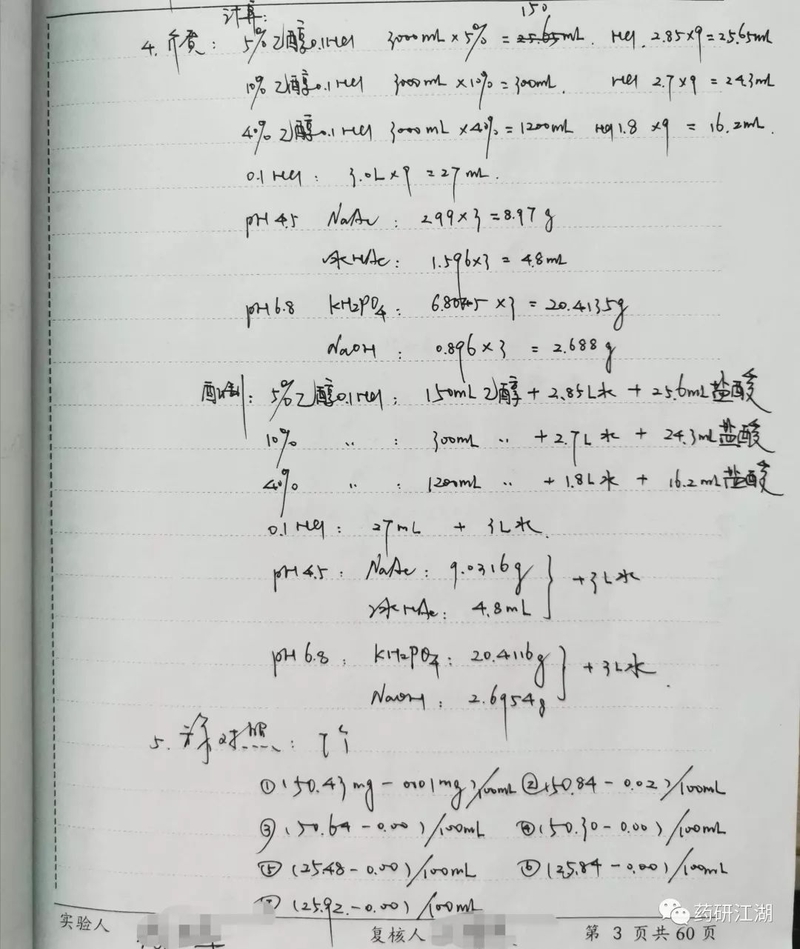 计算:
150
4. 介质: 5%乙醇0.1HCl 3000mL×5%=25.65mL. HCl 2.85×9=25.65mL
10%乙醇0.1HCl 3000mL×10%=300mL. HCl 2.7×9=24.3mL
40%乙醇0.1HCl 3000mL×40%=1200mL HCl 1.8×9=16.2mL.
0.1HCl: 3.0L×9=27mL.
pH4.5 NaAc: 2.99×3=8.97g
冰HAc: 1.596×3=4.8mL
pH6.8 KH2PO4: 6.8045×3=20.4135g
NaOH: 0.896×3=2.688g
配制: 5%乙醇0.1HCl: 150mL乙醇+2.85L水+25.6mL盐酸
10% 〃: 300mL〃+2.7L水+24.3mL盐酸
40% 〃: 1200mL〃+1.8L水+16.2mL盐酸
0.1HCl: 27mL+3L水.
pH4.5: NaAc: 9.0316g
冰HAc: 4.8mL } +3L水
pH6.8: KH2PO4: 20.4116g
NaOH: 2.6954g } +3L水.
5. 对照: 7个
①(50.43mg-0.01mg)/100mL ②(50.84-0.02)/100mL
③(50.64-0.00)/100mL ④(50.30-0.00)/100mL
⑤(25.48-0.00)/100mL ⑥(25.84-0.00)/100mL
⑦(25.92-0.00)/100mL
药研江湖
实验人 复核人 第 3 页共 60 页